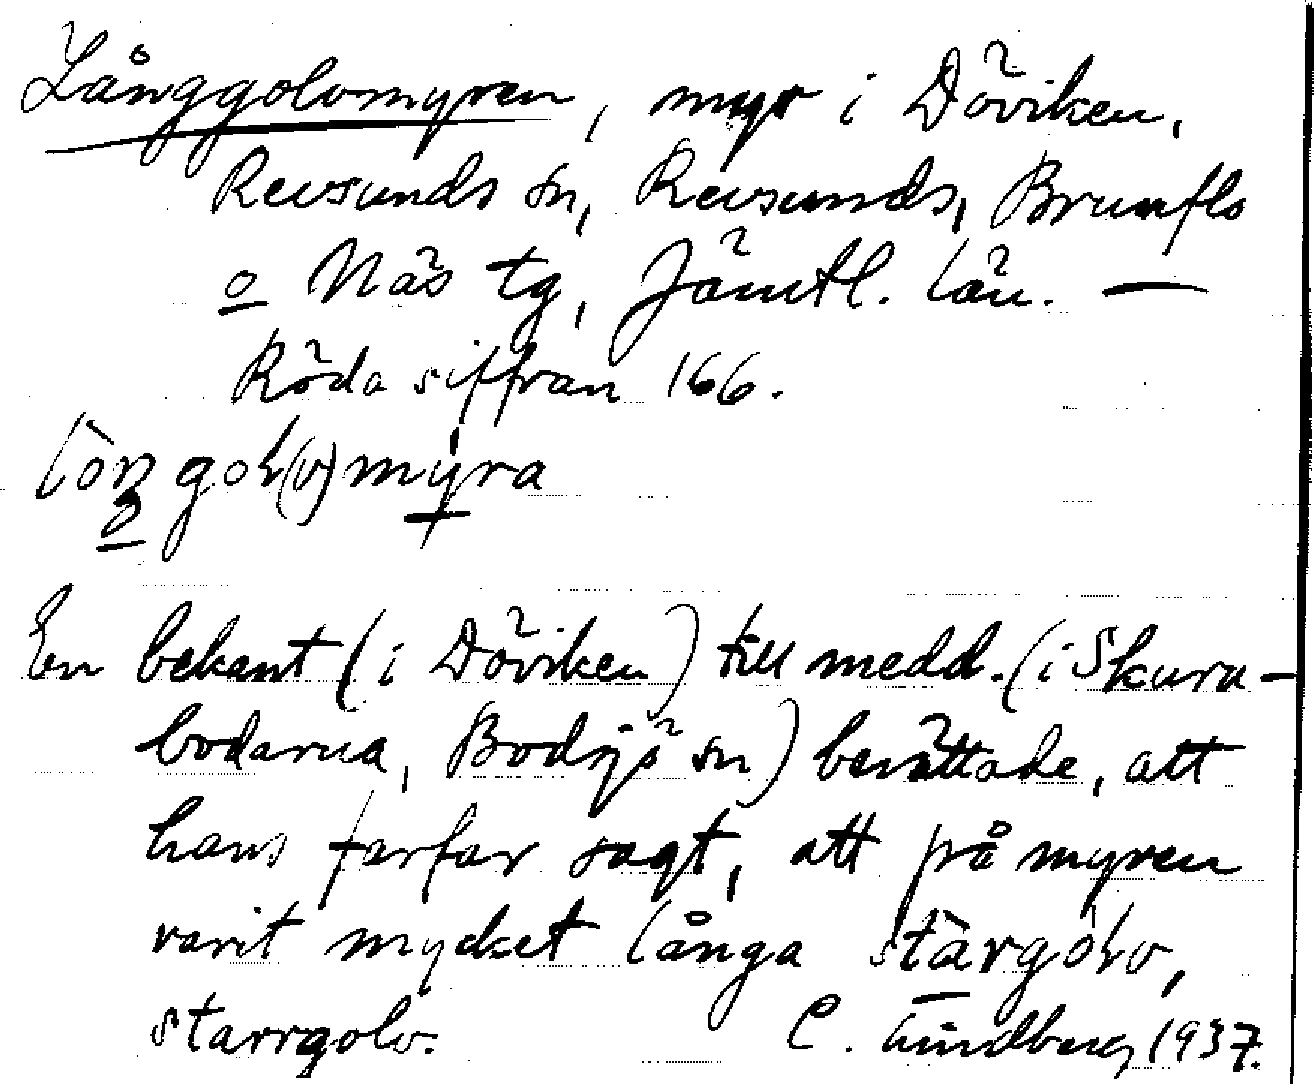 Långgolvmyren, myr i Döviken,
Revsunds sn, Revsunds, Brunflo
o Näs tg, Jämtl. län. —
Röda siffran 166.
(v)mýra
En bekant (i Döviken) till medd. (i Skura-
bodarna, Bodsjö sn) berättade, att
hans farfar sagt, att på myren
varit mycket långa
starrgolv. C. Lindberg 1937.